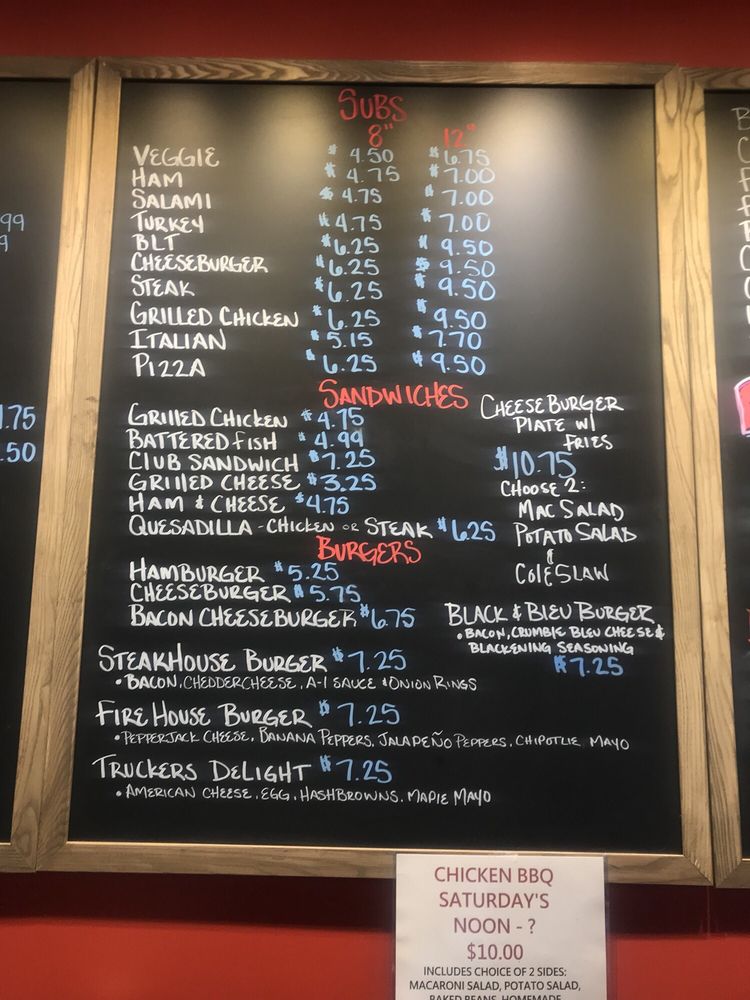 SUBS
8" 12"
VEGGIE $4.50 $6.75
HAM $4.75 $7.00
SALAMI $4.75 $7.00
TURKEY $4.75 $7.00
BLT $6.25 $9.50
CHEESEBURGER $6.25 $9.50
STEAK $6.25 $9.50
GRILLED CHICKEN $6.25 $9.50
ITALIAN $5.15 $7.70
PIZZA $6.25 $9.50
SANDWICHES
GRILLED CHICKEN $4.75
BATTERED FISH $4.99
CLUB SANDWICH $7.25
GRILLED CHEESE $3.25
HAM & CHEESE $4.75
QUESADILLA - CHICKEN OR STEAK $6.25
CHEESEBURGER
PLATE W/
FRIES
$10.75
CHOOSE 2:
MAC SALAD
POTATO SALAD
&
COLESLAW
BURGERS
HAMBURGER $5.25
CHEESEBURGER $5.75
BACON CHEESEBURGER $6.75
BLACK & BLEU BURGER
• BACON, CRUMBLE BLEU CHEESE &
BLACKENING SEASONING
$7.25
STEAKHOUSE BURGER $7.25
• BACON, CHEDDERCHEESE, A-1 SAUCE & ONION RINGS
FIRE HOUSE BURGER $7.25
• PEPPERJACK CHEESE, BANANA PEPPERS, JALAPEÑO PEPPERS, CHIPOTLE MAYO
TRUCKERS DELIGHT $7.25
• AMERICAN CHEESE, EGG, HASHBROWNS, MAPLE MAYO
.99
9
1.75
.50
CHICKEN BBQ
SATURDAY'S
NOON - ?
$10.00
INCLUDES CHOICE OF 2 SIDES:
MACARONI SALAD, POTATO SALAD,
BAKED BEANS, HOMEMADE